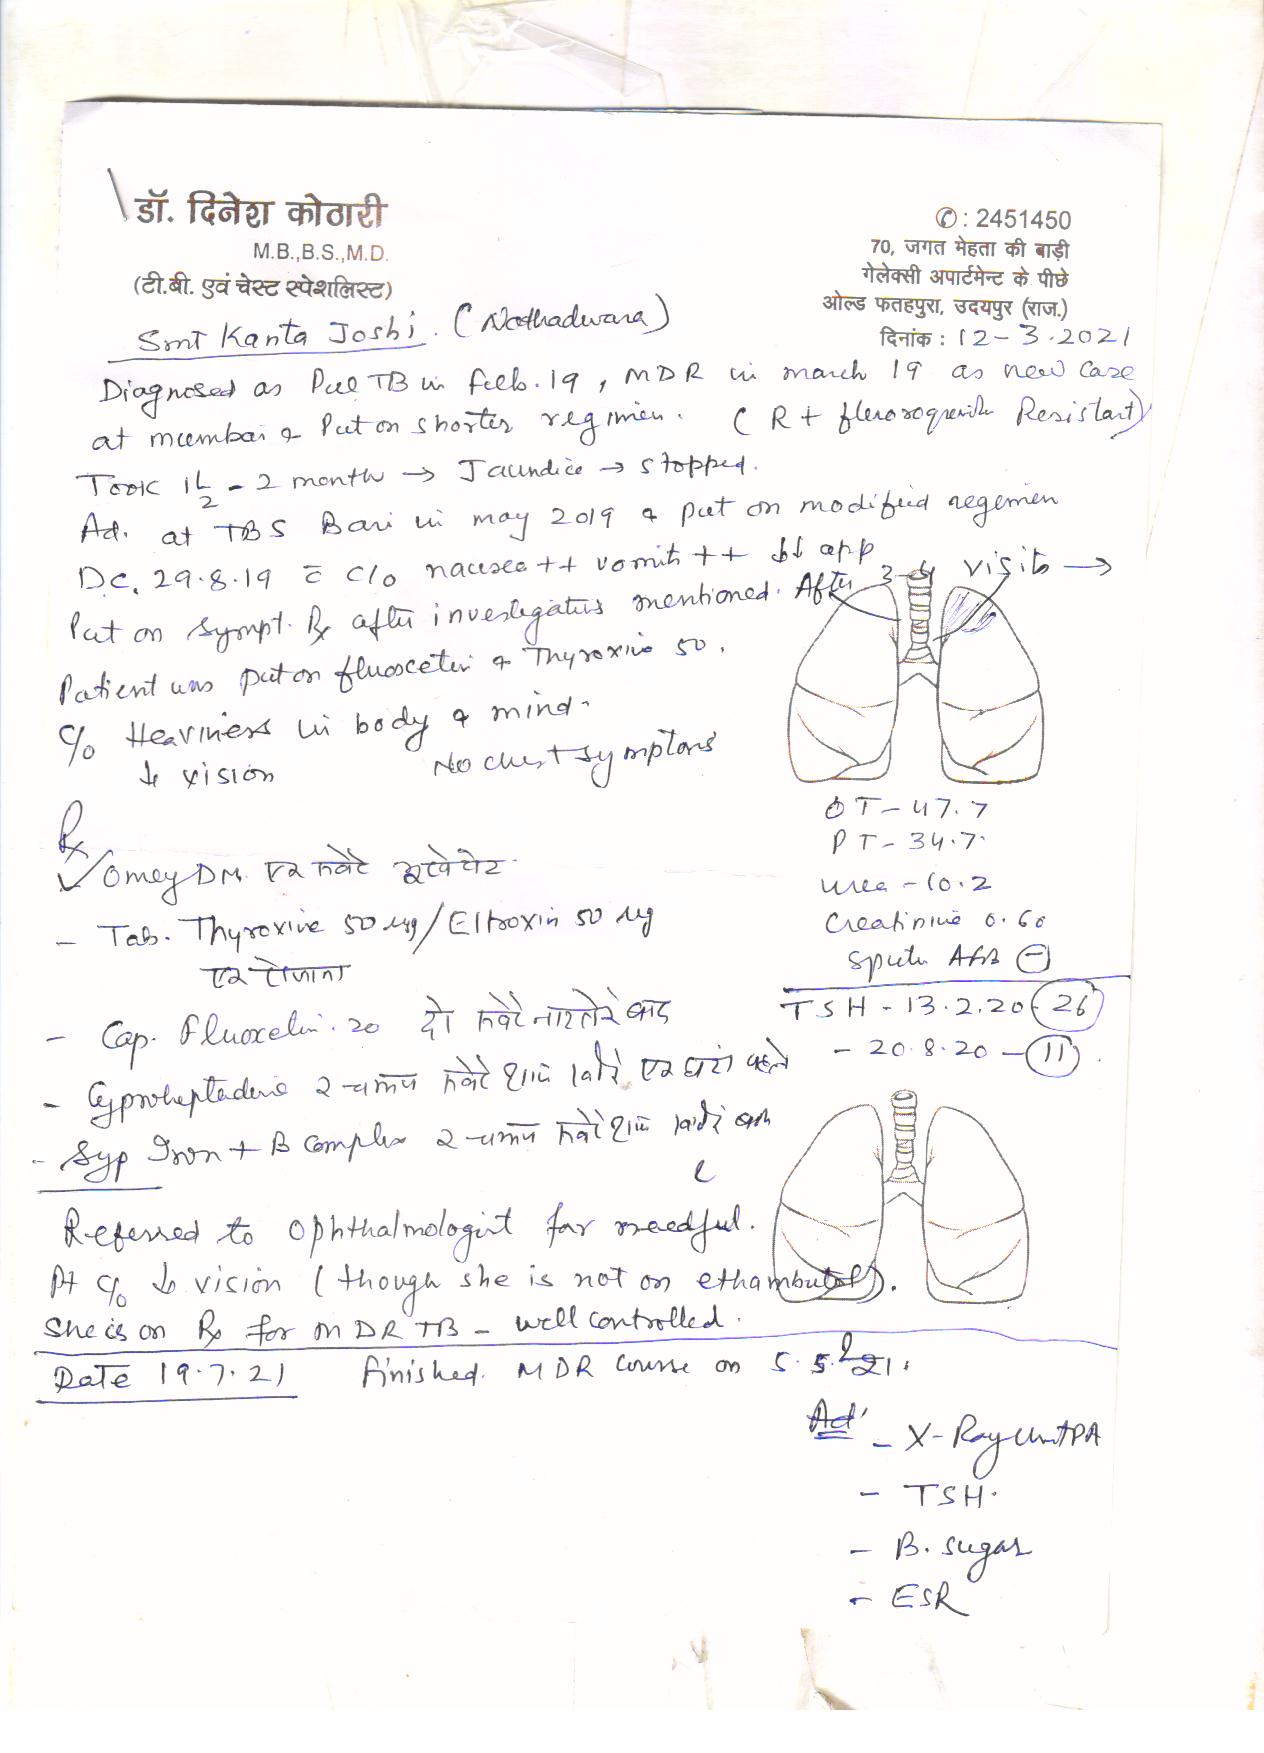 डॉ. दिनेश कोठारी
M.B.,B.S.,M.D.
(टी.बी. एवं चेस्ट स्पेशलिस्ट)
✆: 2451450
70, जगत मेहता की बाड़ी
गेलेक्सी अपार्टमेन्ट के पीछे
ओल्ड फतहपुरा, उदयपुर (राज.)
दिनांक : 12-3.2021
Smt Kanta Joshi. (Nathadwara)
Diagnosed as Pul TB in feb.19, MDR in march 19 as new case
at mumbai & Put on shorter regimen. (R + Resistant)
Took 1½ - 2 month → Jaundice → stopped.
Ad. at TBS Bari in may 2019 & put on modified regimen
DC. 29.8.19 c̄ c/o nausea ++ vomit ++ ↓↓ app
Put on sympt. Rx after investigations mentioned. After 3-4 visits →
Patient was put on & Thyroxine 50.
c/o Heaviness in body & mind.
↓ vision No chest symptoms
OT - 47.7
PT - 34.7
Urea - 10.2
Creatinine 0.60
AFB (-)
TSH - 13.2.20 - 26
- 20.8.20 - 11
Rx
✓ Omey DM एक सवेरे
- Tab. Thyroxine 50 µg / Eltroxin 50 µg
एक रोजाना
- Cap. Fluoxetin. 20 दो सवेरे नाश्ते के बाद
- Cyproheptadine २ चम्मच सवेरे शाम खाने एक घंटा पहले
- Syp Iron + B Complex २ चम्मच सवेरे शाम खाने बाद
Referred to Ophthalmologist for needful.
Pt c/o ↓ vision (though she is not on ethambutol).
She is on Rx for MDR TB - well controlled.
Date 19.7.21 finished. MDR course on 5.5.21.
Ad'
- X-Ray PA
- TSH.
- B. sugar
- ESR